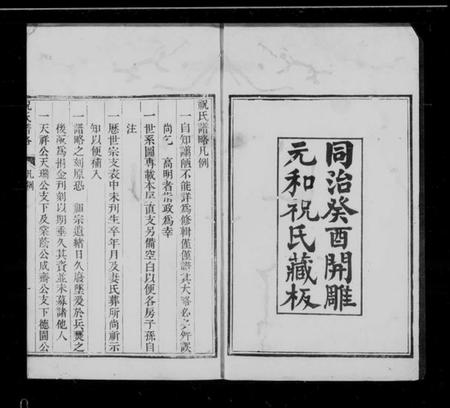 同治癸酉開雕
元和祝氏藏板
祝氏譜略凡例
一自知譾陋不能詳爲修輯僅僅譜其大略名之舛誤
尚乞 高明者指政爲幸
一世系圖專載本房直支另備空白以便各房子孫自
注
一歷世宗支表中未列生卒年月及妻氏葬所尚祈示
知以便補入
一譜略之刻原恐 祖宗遺緒日久廢墜爰於兵燹之
後淑爲捐金刊刻以期垂久其資並未募諸他人
一天祥公天瑞公支下及業蒼公成齋公支下德園公
祝氏譜略 凡例 一